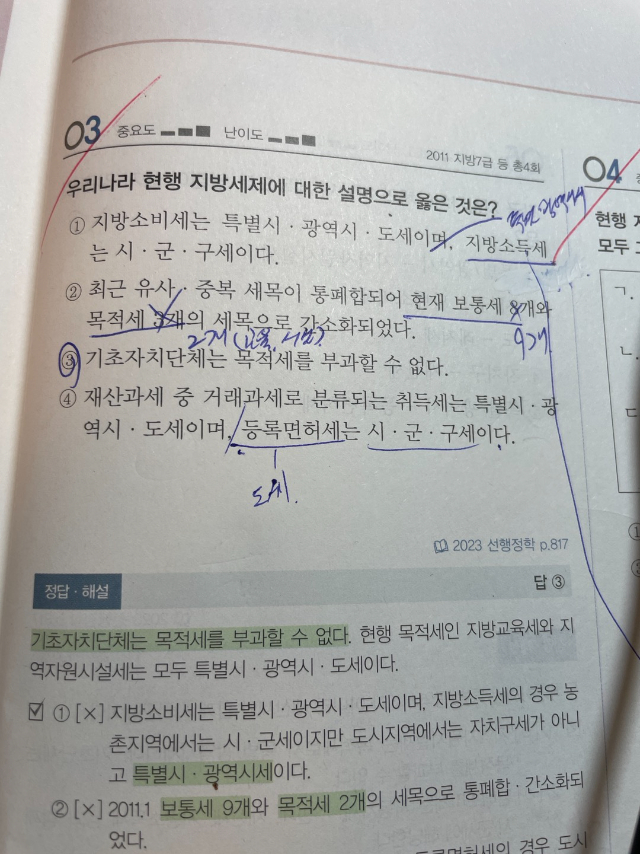 03 중요도 난이도
2011 지방7급 등 총4회
우리나라 현행 지방세제에 대한 설명으로 옳은 것은?
① 지방소비세는 특별시·광역시·도세이며, 지방소득세
는 시·군·구세이다.
② 최근 유사·중복 세목이 통폐합되어 현재 보통세 8개와
목적세 3개의 세목으로 간소화되었다.
9개
2개
③ 기초자치단체는 목적세를 부과할 수 없다.
④ 재산과세 중 거래과세로 분류되는 취득세는 특별시·광
역시·도세이며, 등록면허세는 시·군·구세이다.
도세.
2023 선행정학 p.817
정답·해설
답 ③
기초자치단체는 목적세를 부과할 수 없다. 현행 목적세인 지방교육세와 지
역자원시설세는 모두 특별시·광역시·도세이다.
① [×] 지방소비세는 특별시·광역시·도세이며, 지방소득세의 경우 농
촌지역에서는 시·군세이지만 도시지역에서는 자치구세가 아니
고 특별시·광역시세이다.
② [×] 2011.1 보통세 9개와 목적세 2개의 세목으로 통폐합·간소화되
었다.
경우 도시
04
현행
모두
ㄱ.
ㄴ.